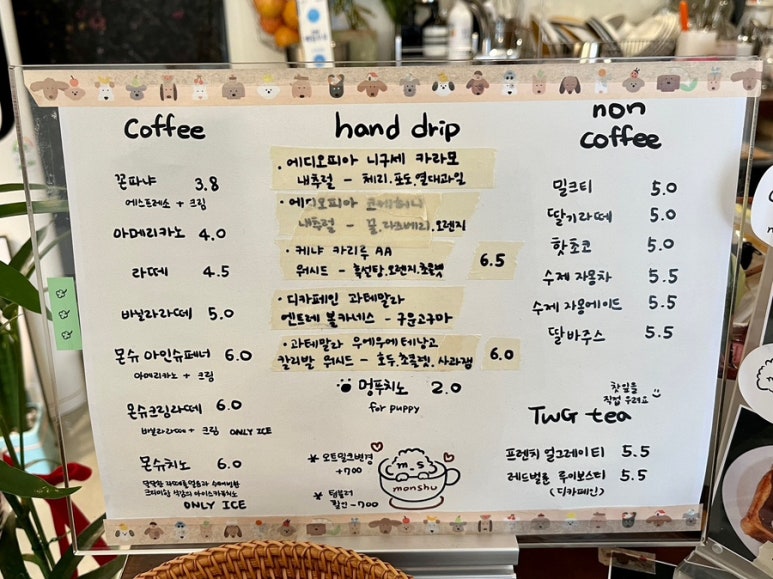 Coffee
꼰파냐 3.8
에스프레소 + 크림
아메리카노 4.0
라떼 4.5
바닐라라떼 5.0
몬슈 아인슈페너 6.0
아메리카노 + 크림
몬슈크림라떼 6.0
바닐라라떼 + 크림 ONLY ICE
몬슈치노 6.0
ONLY ICE
hand drip
· 에디오피아 니구세 카라모
내추럴 - 체리.포도.열대과일
· 에디오피아
내추럴 - 꿀.라즈베리.오렌지
· 케냐 카리루 AA
워시드 - 흑설탕.오렌지.초콜렛
6.5
· 디카페인 과테말라
엔트레 볼카네스 - 구운고구마
· 과테말라 우에우에테낭고
칼리발 워시드 - 호두.초콜렛.사과잼
6.0
멍푸치노 2.0
for puppy
* 오트밀크변경
+700
* 텀블러
할인 -700
m.s
monshu
non
coffee
밀크티 5.0
딸기라떼 5.0
핫초코 5.0
수제 자몽차 5.5
수제 자몽에이드 5.5
딸바주스 5.5
찻잎을
직접 우려요
TWG tea
프렌치 얼그레이티 5.5
레드벌룬 루이보스티 5.5
(디카페인)